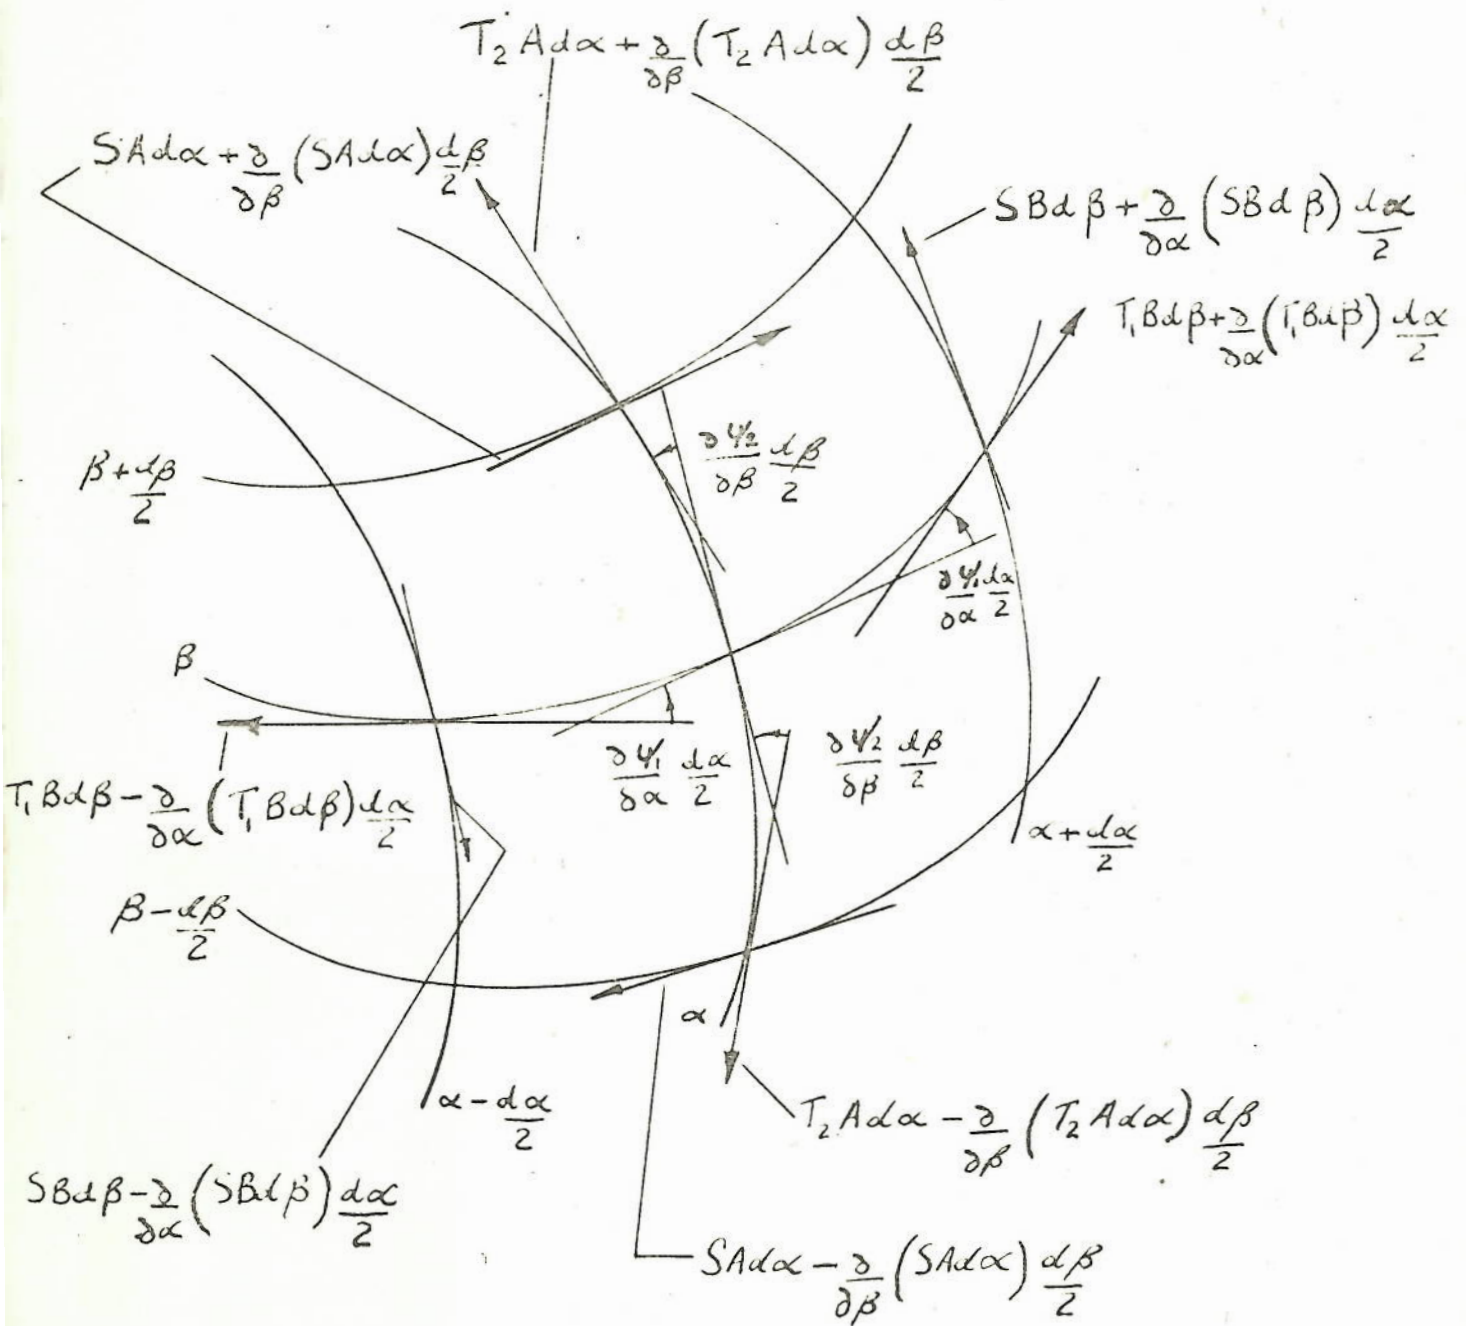 T₂Adα + ∂/∂β (T₂Adα) dβ/2
SAdα + ∂/∂β (SAdα) dβ/2
SBdβ + ∂/∂α (SBdβ) dα/2
T₁Bdβ + ∂/∂α (T₁Bdβ) dα/2
∂ψ₂/∂β dβ/2
β + dβ/2
∂ψ₁/∂α dα/2
β
∂ψ₁/∂α dα/2
∂ψ₂/∂β dβ/2
T₁Bdβ − ∂/∂α (T₁Bdβ) dα/2
α + dα/2
β − dβ/2
α
α − dα/2
T₂Adα − ∂/∂β (T₂Adα) dβ/2
SBdβ − ∂/∂α (SBdβ) dα/2
SAdα − ∂/∂β (SAdα) dβ/2